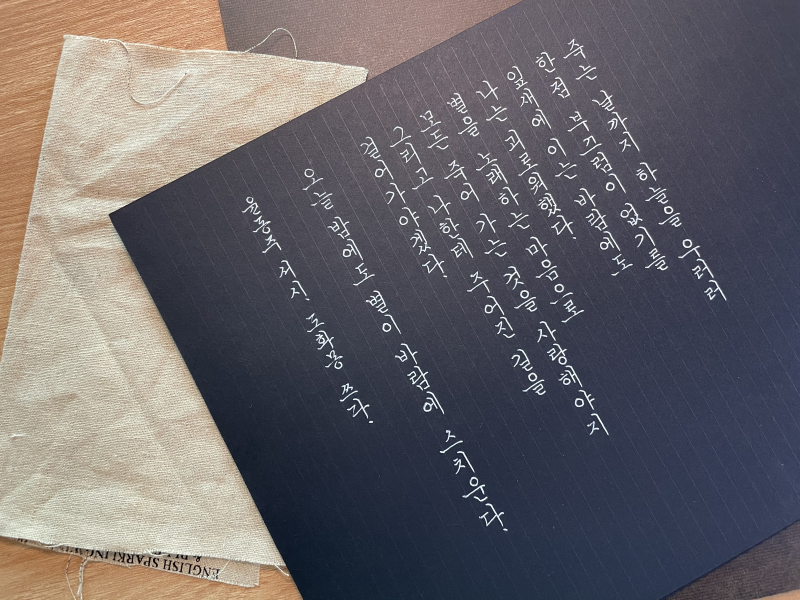 죽는 날까지 하늘을 우러러
한 점 부끄럼이 없기를
잎새에 이는 바람에도
나는 괴로워했다.
별을 노래하는 마음으로
모든 죽어 가는 것을 사랑해야지
그리고 나한테 주어진 길을
걸어가야겠다.
오늘 밤에도 별이 바람에 스치운다.
윤동주 서시. 도화몽 쓰다.
ENGLISH SPARKLING
&